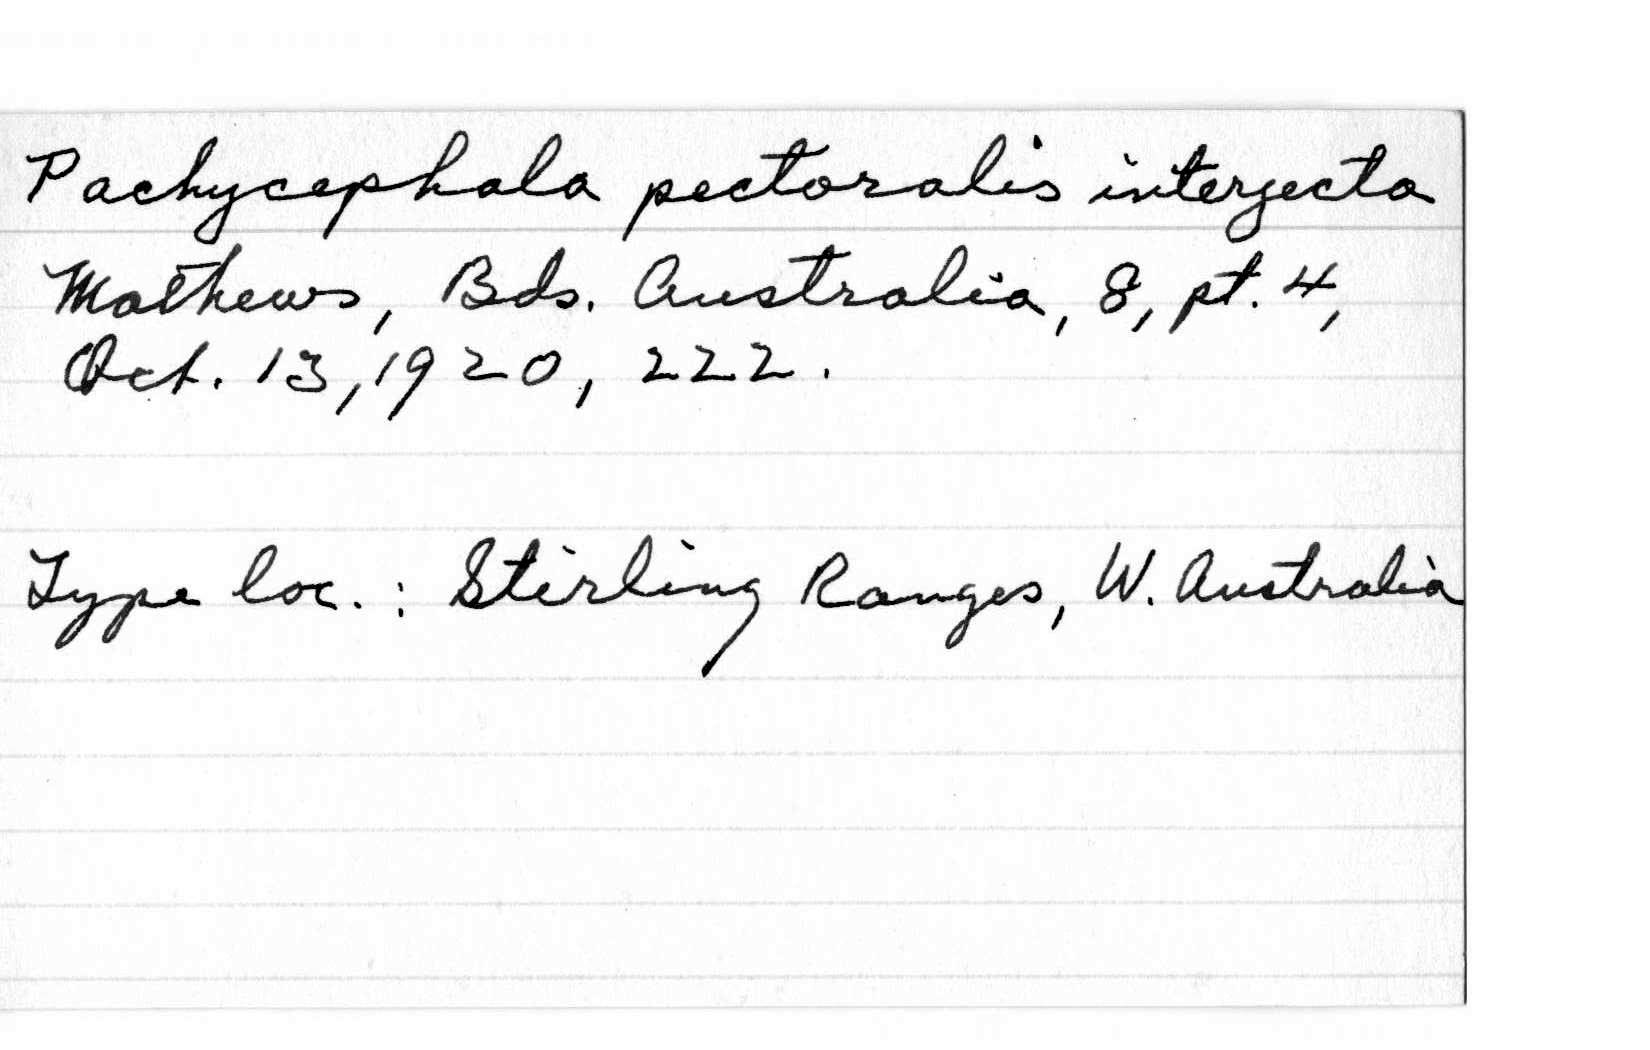 Pachycephala pectoralis interjecta
Mathews, Bds. Australia, 8, pt. 4,
Oct. 13, 1920, 222.
Type loc. : Stirling Ranges, W. Australia